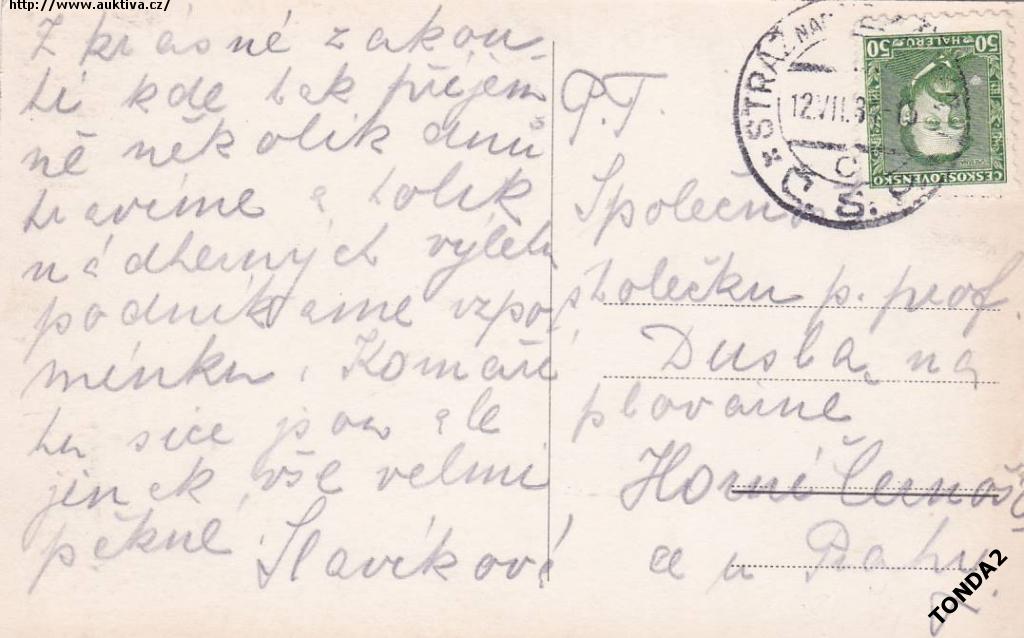 http://www.auktiva.cz/
Z krásné zakou
tí kde tak příjem
ně několik dnů
travíme a tolik
nádherných výletů
podnikáme vzpo
mínku. Komáři
tu sice jsou ale
jinak vše velmi
pěkné. Slavíková
P.T.
Společno
stolečku p. prof.
Dusla, na
plovárně
Horní Černoši
ce u Prahy
STRÁŽ NAD
12.VII.3
C
Č.S.
50 HALÉŘŮ 50
ČESKOSLOVENSKO
TONDA2